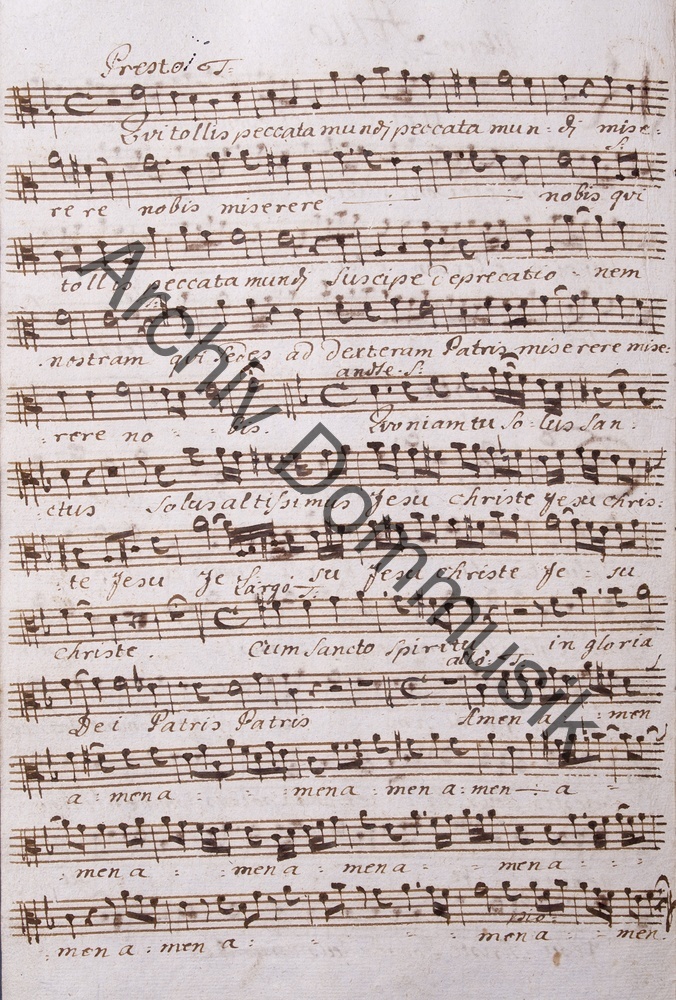 Presto. T.
Qvi tollis peccata mundi peccata mun - di mise:
S.
rere nobis miserere nobis qvi
tollis peccata mundi suscipe deprecatio - nem
nostram qvi sedes ad dexteram Patris miserere mise:
andte. S.
rere no - bis. Qvoniam tu so - lus san :
ctus solus altissimus Jesu christe Jesu chris:
te Jesu Je - su Jesu christe Je - su
Largo S.
christe . Cum sancto spiritu in gloria
allo: T.
Dei Patris Patris Amen a men
a : men a mena men a : men a
men a : men a men a men a
pio
men a : men a men a men.
Archiv Dommusik